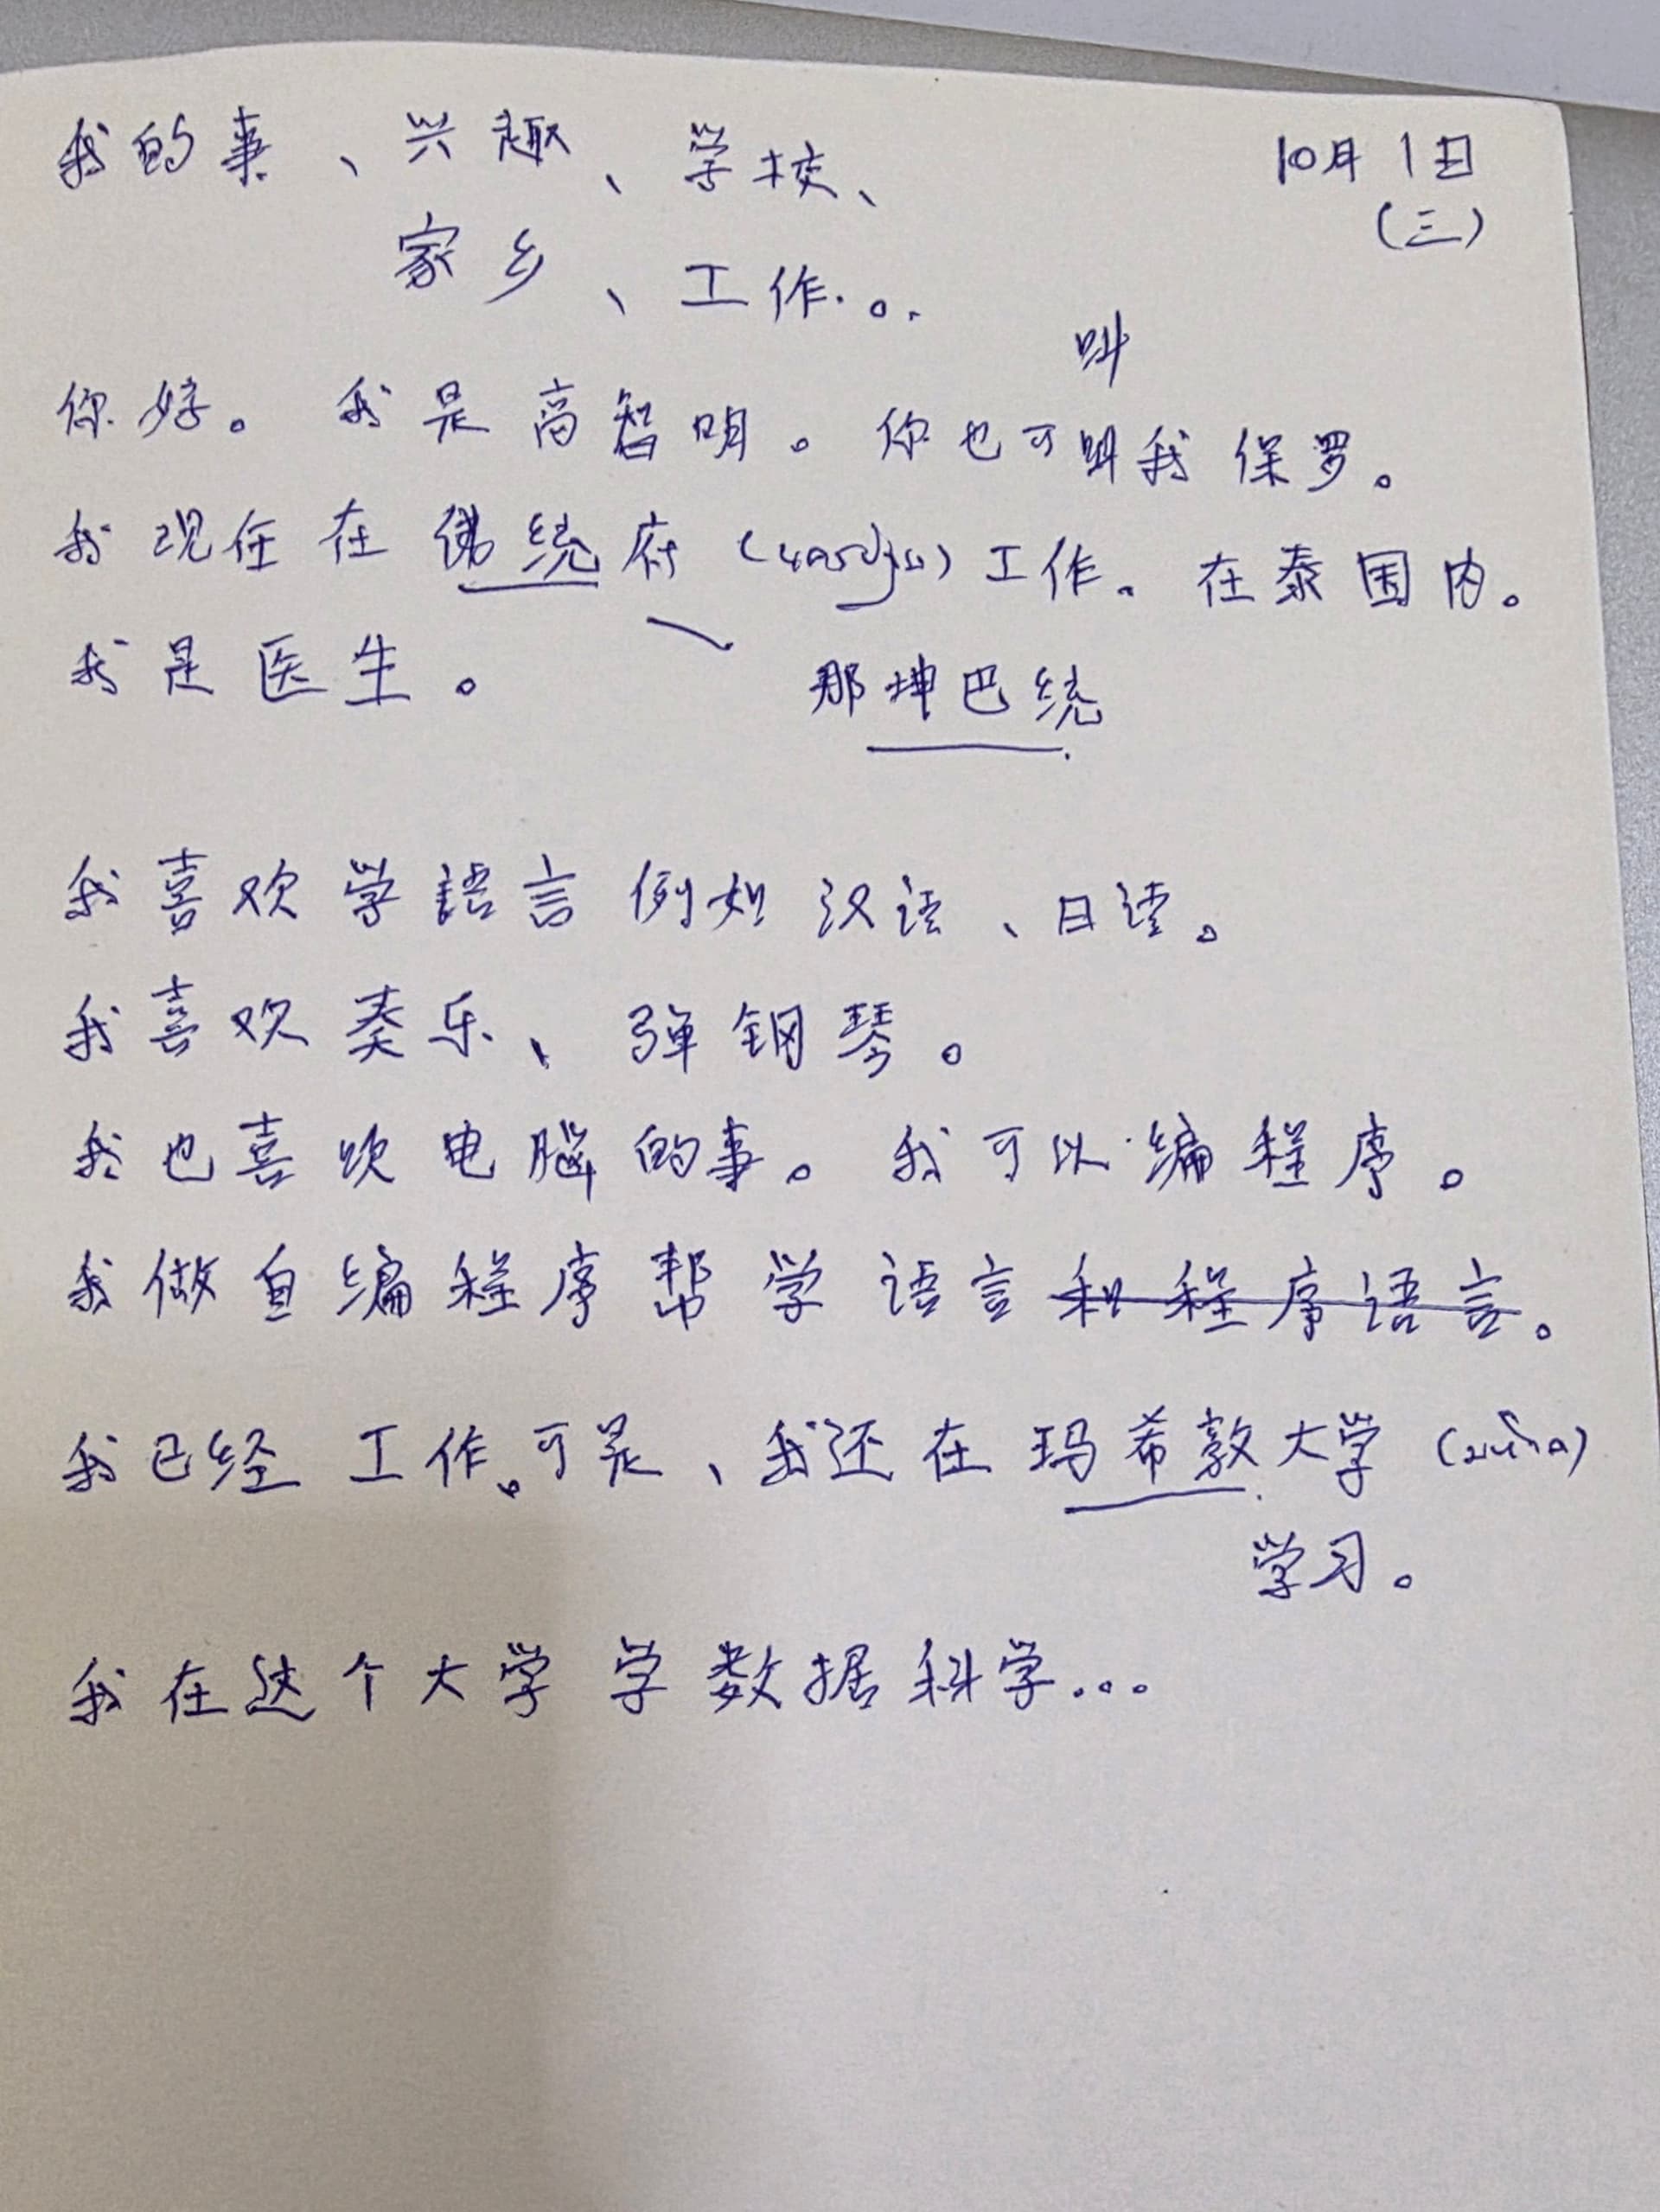 我的事、兴趣、学校、
10月1日
(三)
家乡、工作.。.
叫
你好。我是高智明。你也可叫我保罗。
我现在在佛统府(นครปฐม)工作。在泰国内。
我是医生。
那坤巴统
我喜欢学語言例如汉语、日语。
我喜欢奏乐、弹钢琴。
我也喜欢电脑的事。我可以编程序。
我做自编程序帮学语言和程序语言。
我已经工作。可是、我还在玛希敦大学(มหิดล)
学习。
我在这个大学学数据科学...